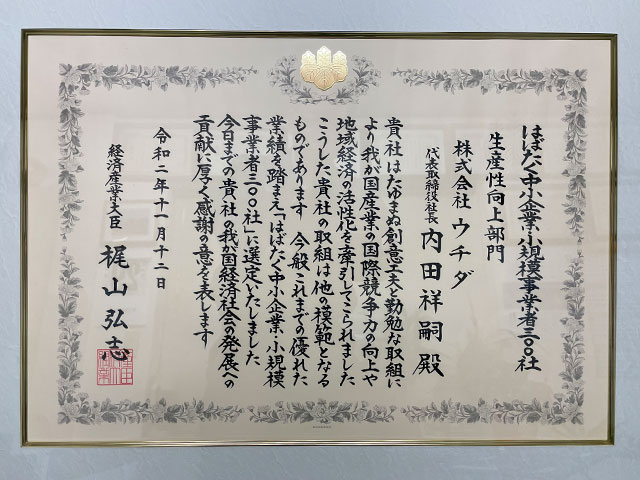 はばたく中小企業・小規模事業者三〇〇社
生産性向上部門
株式会社 ウチダ
代表取締役社長 内田祥嗣 殿
貴社はたゆまぬ創意工夫と勤勉な取組に
より我が国産業の国際競争力の向上や
地域経済の活性化を牽引してこられました
こうした貴社の取組は他の模範となる
ものであります 今般これまでの優れた
業績を踏まえ「はばたく中小企業・小規模
事業者三〇〇社」に選定いたしました
今日までの貴社の我が国経済社会の発展への
貢献に厚く感謝の意を表します
令和二年十一月十二日
経済産業大臣 梶山弘志